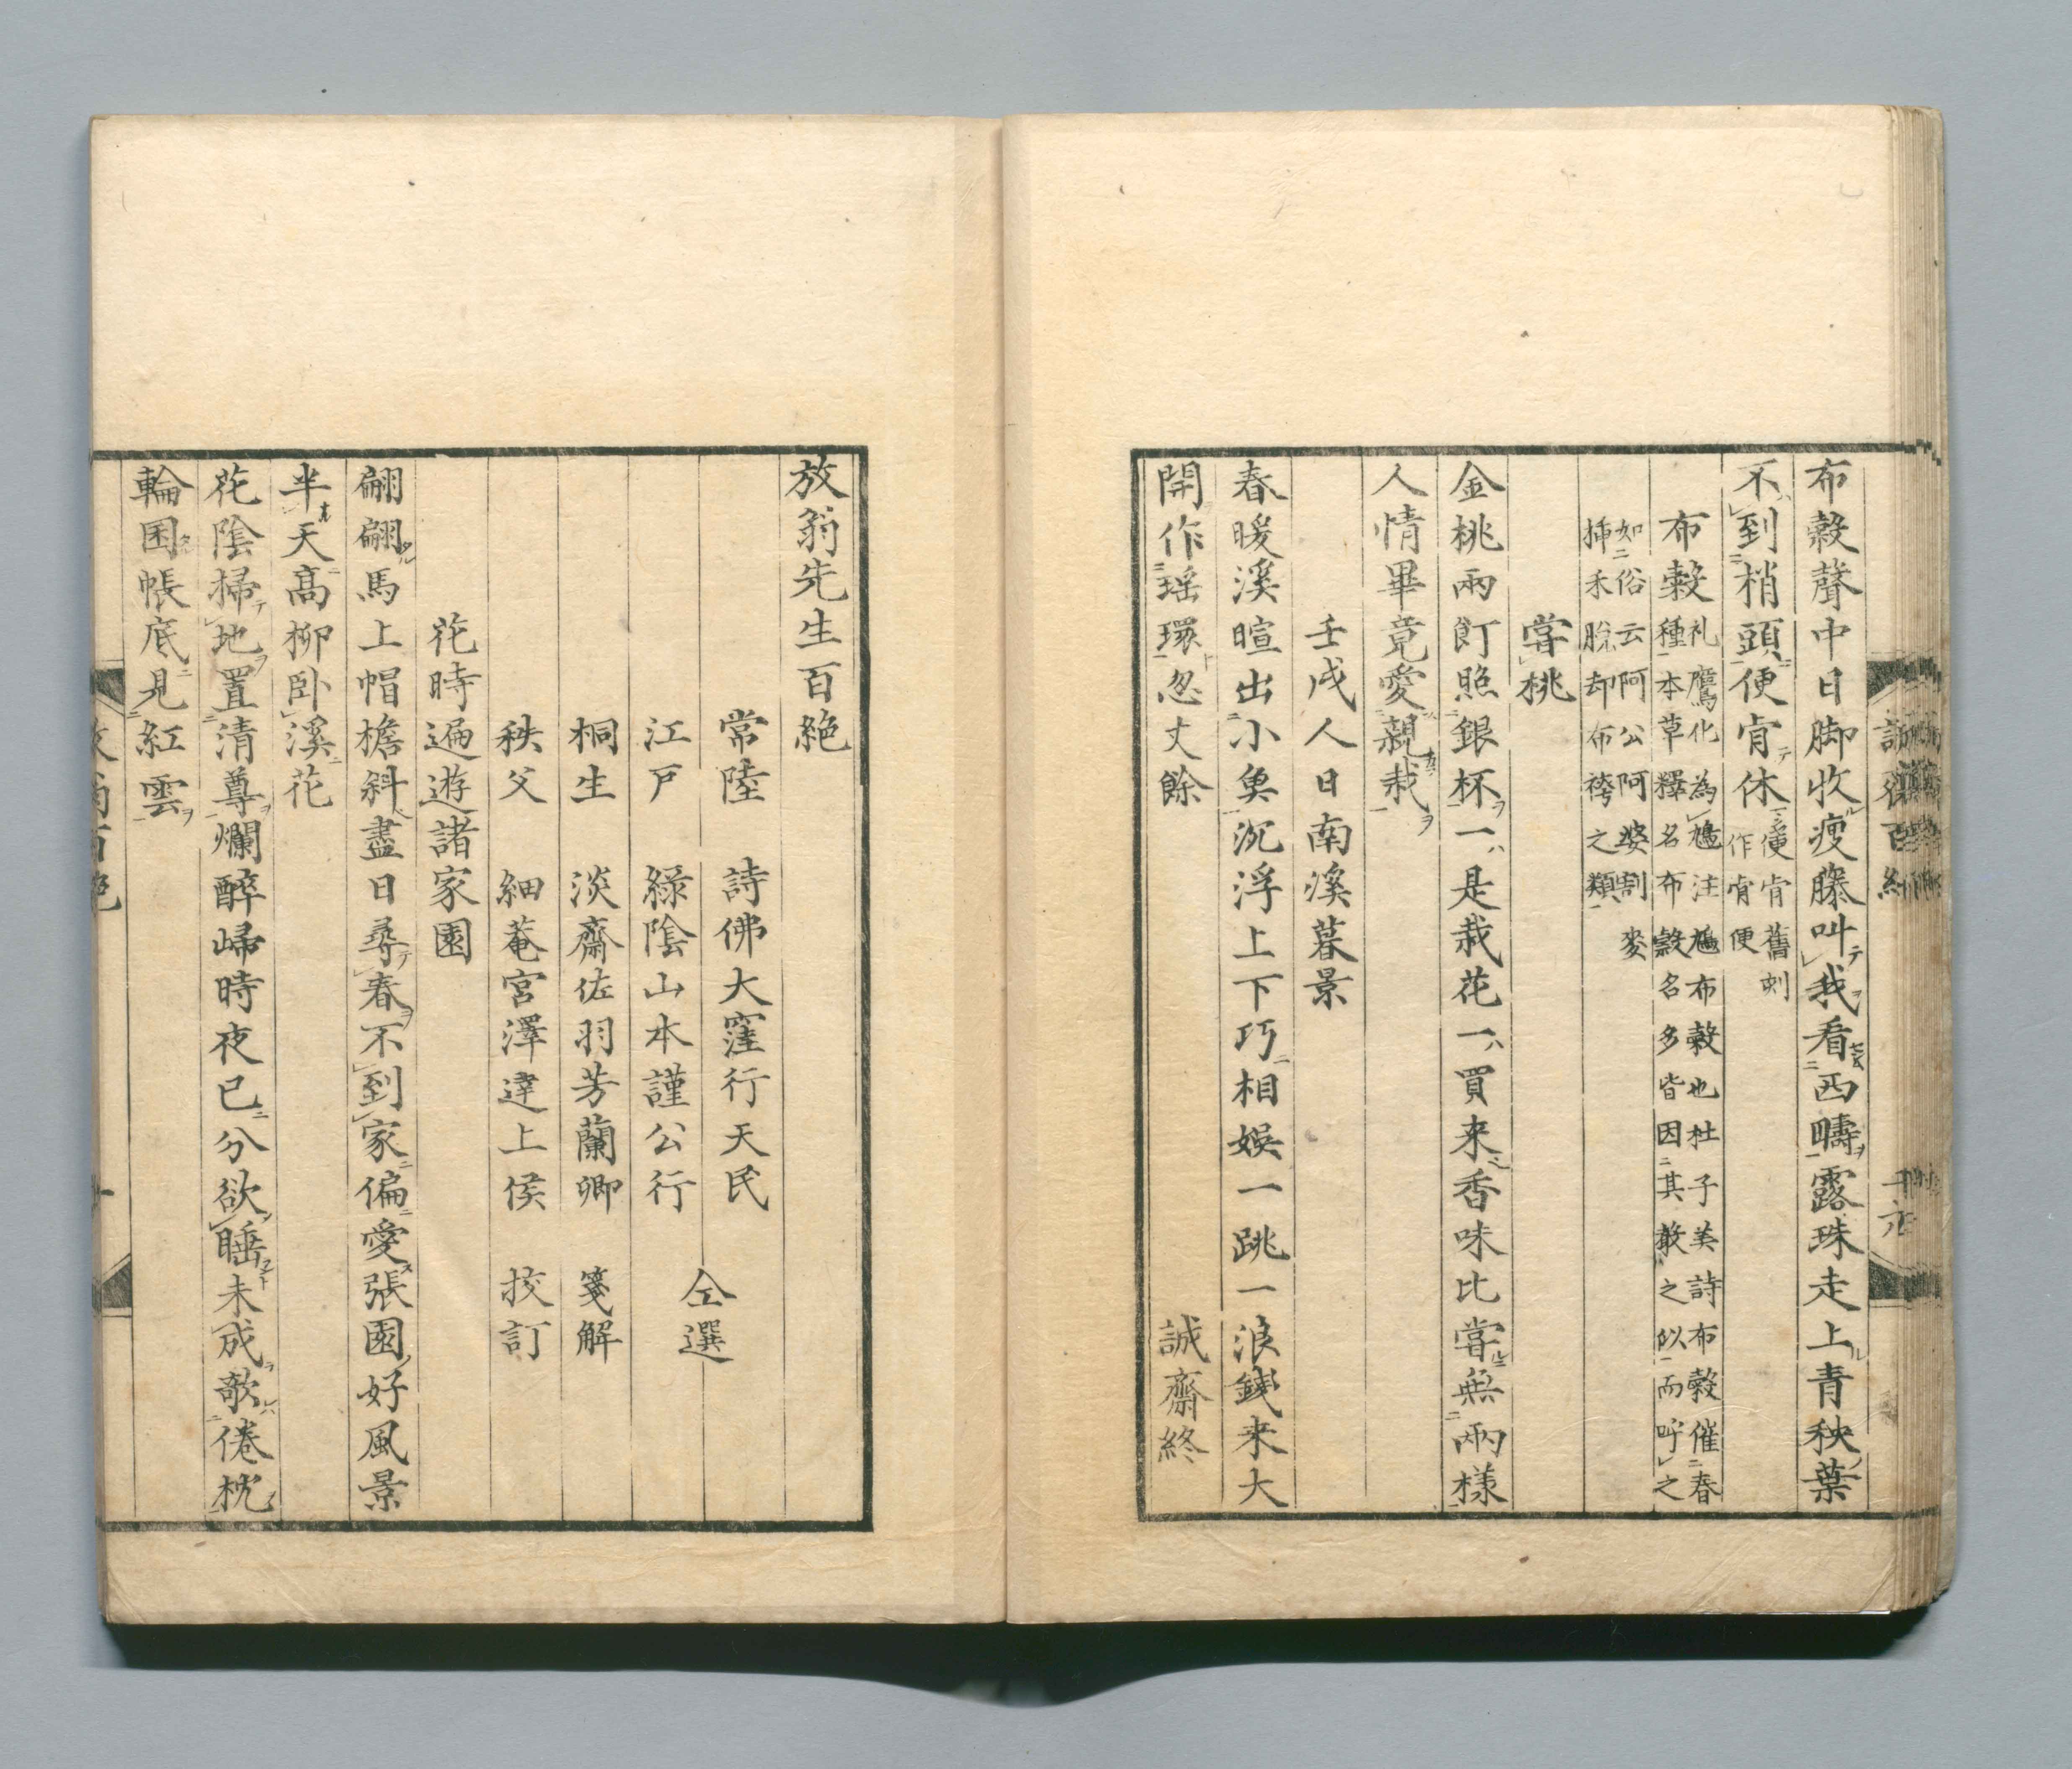 布穀聲中日脚收瘦藤叫我看西疇露珠走上青秧葉
不到梢頭便肯休便肯舊刻
作肯便
布穀礼鷹化為鳩注鳩布穀也杜子美詩布穀催春
種本草釋名布穀名多皆因其聲之似而呼之
如俗云阿公阿婆割麥
挿禾脫却布袴之類
嘗桃
金桃兩飣照銀杯一是栽花一買来香味比嘗無兩樣
人情畢竟愛親栽
壬戌人日南溪暮景
春暖溪暄出小魚沉浮上下巧相娛一跳一浪錢来大
開作瑤環忽丈餘　誠齋終
放翁先生百絶
常陸　詩佛大窪行天民
江戸　緑陰山本謹公行
仝選
桐生　淡齋佐羽芳蘭卿　箋解
秩父　細菴宮澤達上侯　挍訂
花時遍遊諸家園
翩翩馬上帽檐斜盡日尋春不到家偏愛張園好風景
半天高柳臥溪花
花陰掃地置清尊爛醉歸時夜已分欲睡未成歌倦枕
輪囷帳底見紅雲